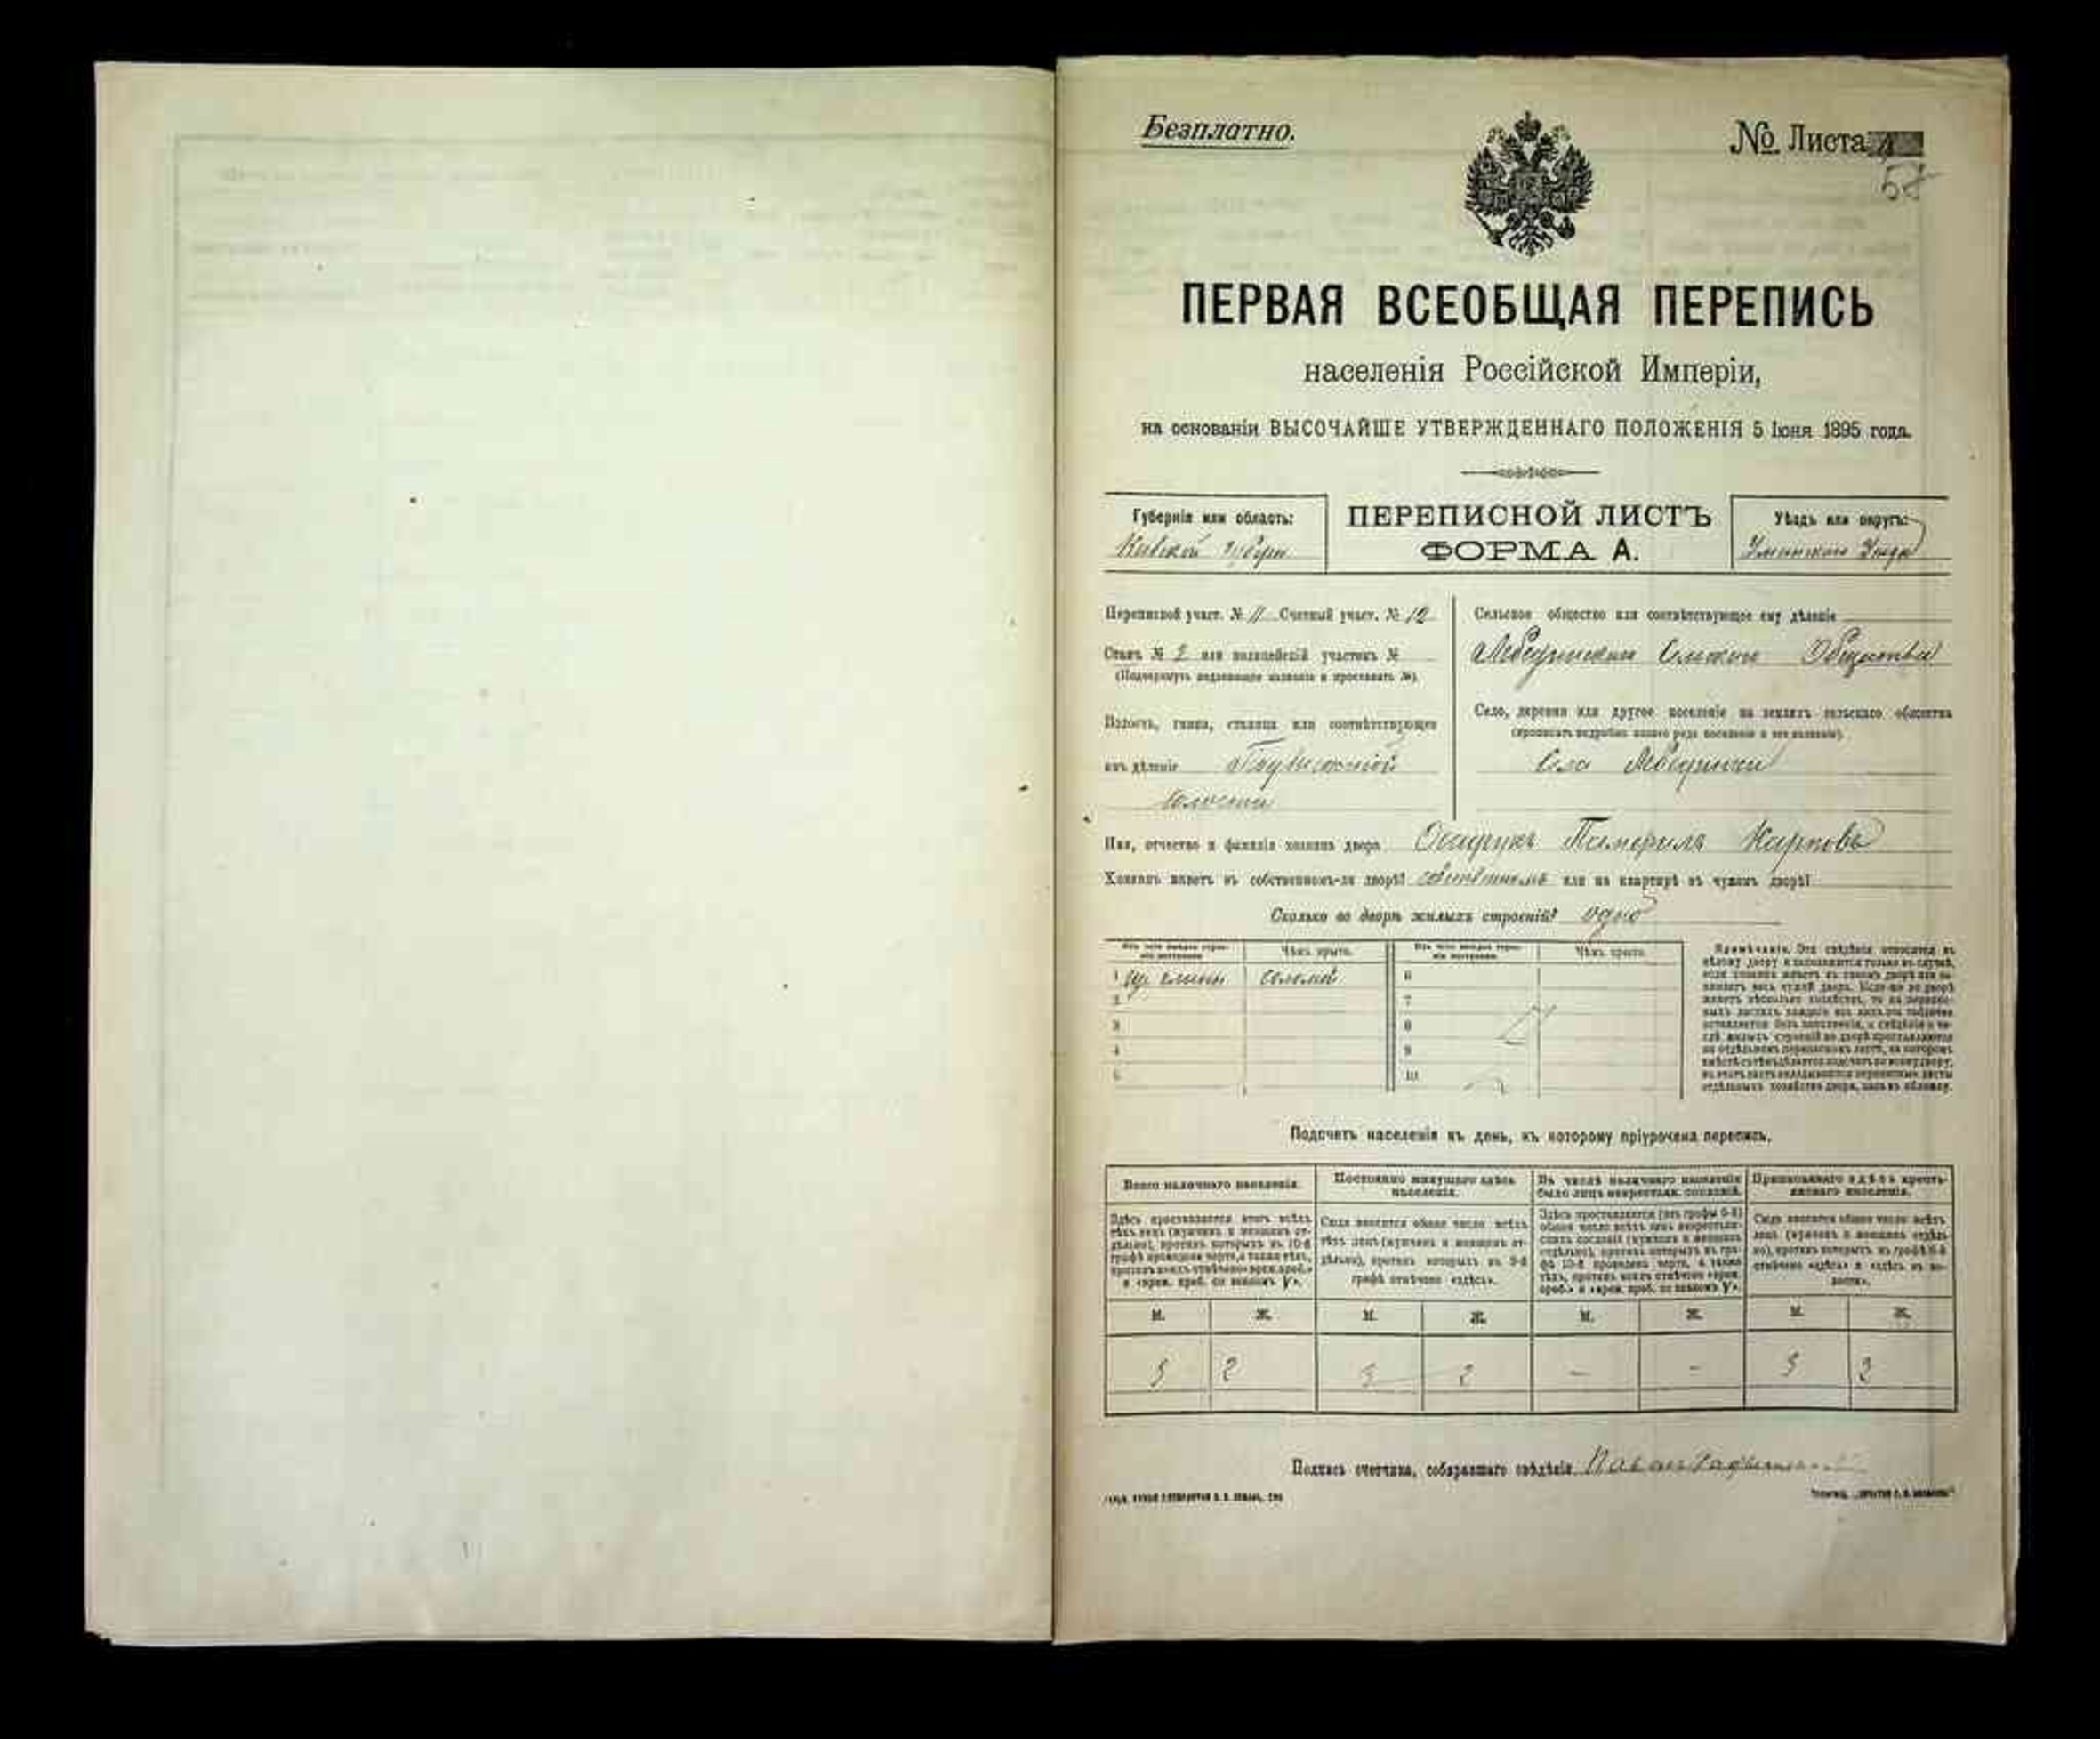 Безплатно.
№ Листа
58
ПЕРВАЯ ВСЕОБЩАЯ ПЕРЕПИСЬ
населенія Россійской Имперіи,
на основаніи ВЫСОЧАЙШЕ УТВЕРЖДЕННАГО ПОЛОЖЕНІЯ 5 Іюня 1895 года.
Губернія или область:
Кіевской губерн
ПЕРЕПИСНОЙ ЛИСТЪ
ФОРМА А.
Уѣздъ или округъ:
Уманскаго Уѣзда
Переписной участ. № 11 Счетный участ. № 12
Станъ № 2 или полицейскій участокъ №
(Подчеркнуть надлежащее названіе и проставить №).
Волость, гмина, станица или соотвѣтствующее
имъ дѣленіе
волости
Сельское общество или соотвѣтствующее ему дѣленіе
Сельскаго Общества
Село, деревня или другое поселеніе на земляхъ сельскаго общества
(прописать подробно какого рода поселеніе и его названіе).
Села
Имя, отчество и фамилія хозяина двора Осадчукъ Памфилъ Карповъ
Хозяинъ живетъ въ собственномъ-ли дворѣ? собственномъ или на квартирѣ въ чужомъ дворѣ?
Сколько во дворѣ жилыхъ строеній? одно
Изъ чего каждое строеніе построено.
Чѣмъ крыто.
Изъ чего каждое строеніе построено.
Чѣмъ крыто.
1 изъ глины соломой 6
2 7
3 8
4 9
5 10
Примѣчаніе. Эти свѣдѣнія относятся къ
цѣлому двору и заполняются только въ случаѣ,
если хозяинъ живетъ въ своемъ дворѣ или за-
нимаетъ весь чужой дворъ. Если-же во дворѣ
живетъ нѣсколько хозяйствъ, то на перепис-
ныхъ листахъ каждаго изъ нихъ эта табличка
оставляется безъ заполненія, а свѣдѣнія о чи-
слѣ жилыхъ строеній во дворѣ проставляются
на отдѣльномъ переписномъ листѣ, на которомъ
отдѣльныхъ хозяйствъ двора, какъ въ обложку.
Подсчетъ населенія къ день, къ которому пріурочена перепись.
Всего наличнаго населенія.
Постоянно живущаго здѣсь населенія.
Въ числѣ наличнаго населенія было лицъ некрестьян. сословій.
Приписаннаго здѣсь кресть-
янскаго населенія.
Здѣсь проставляется итогъ всѣхъ
тѣхъ лицъ (мужчинъ и женщинъ от-
дѣльно), противъ которыхъ въ 10-й
графѣ проведена черта, а также тѣхъ,
противъ коихъ отмѣчено «врем. преб.»
Сюда вносится общее число всѣхъ
тѣхъ лицъ (мужчинъ и женщинъ от-
дѣльно), противъ которыхъ въ 9-й
графѣ отмѣчено «здѣсь».
Сюда вносится общее число всѣхъ
лицъ (мужчинъ и женщинъ отдѣль-
но), противъ которыхъ въ графѣ 8-й
отмѣчено «здѣсь» и «здѣсь въ во-
лости».
М. Ж. М. Ж. М. Ж. М. Ж.
5 2 5 2 - - 5 2
Подпись счетчика, собиравшаго свѣдѣнія